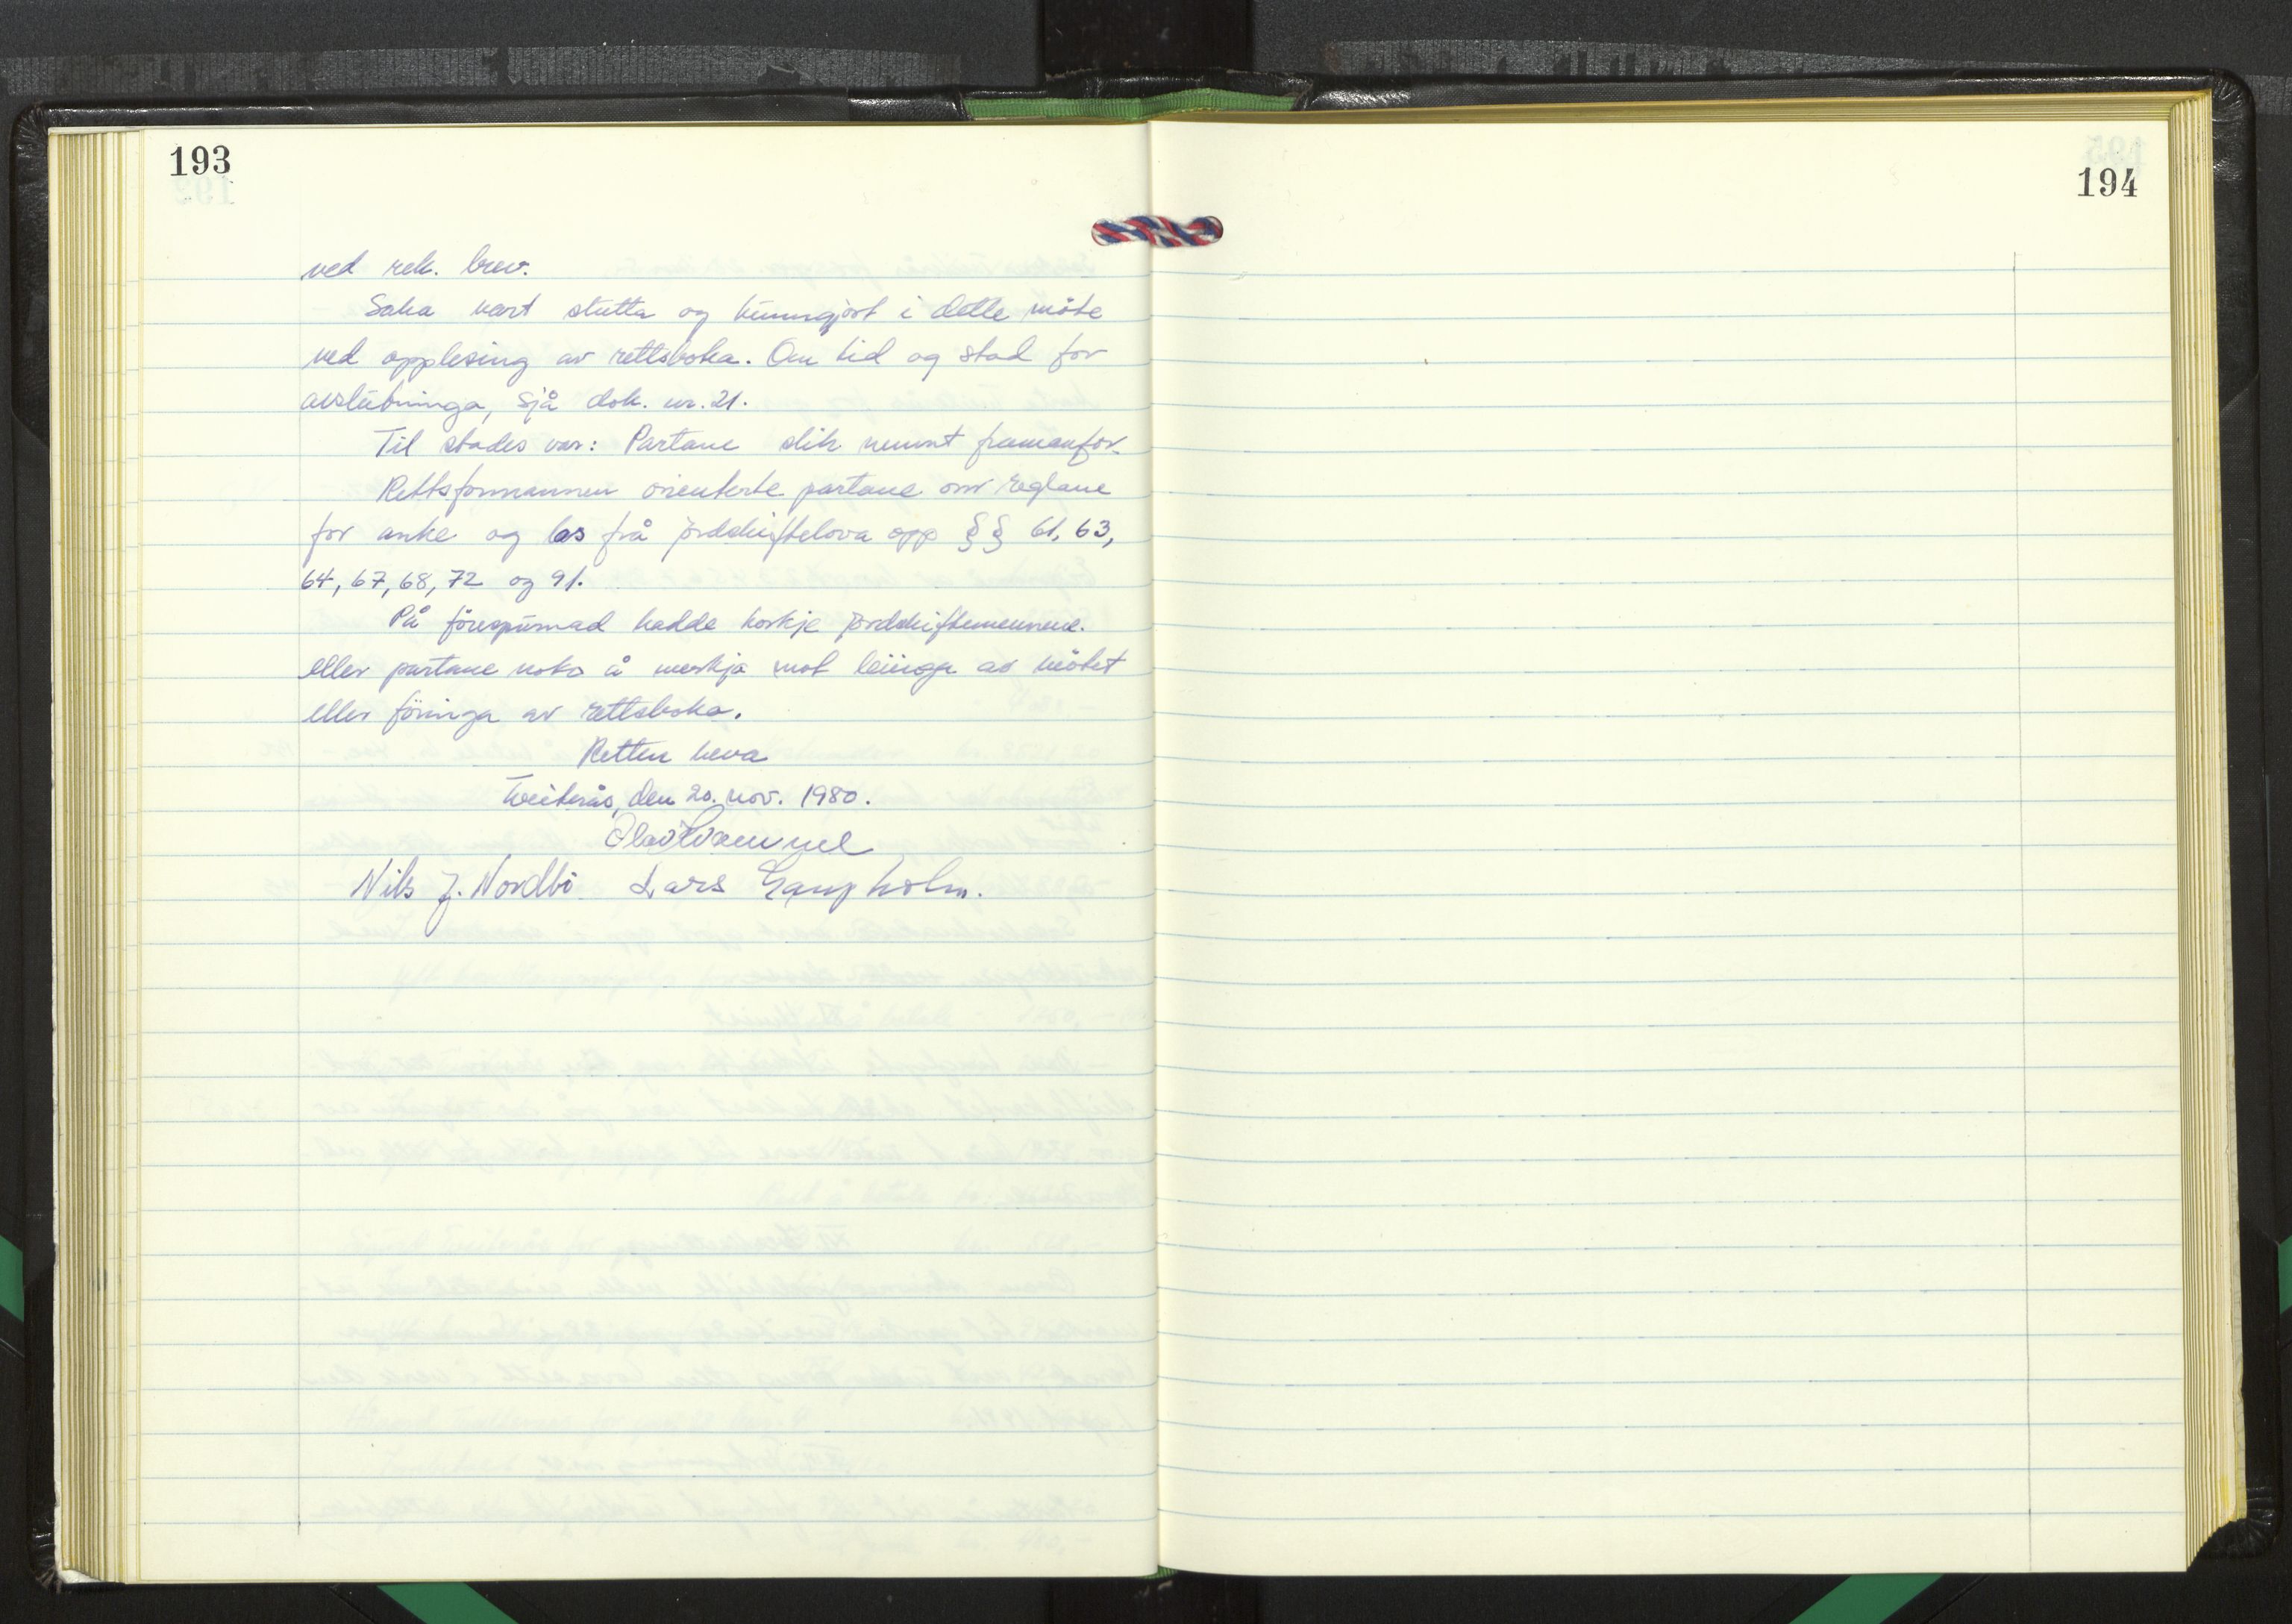 193
ved rek. brev.
Saka vart slutta og kunngjort i dette møte
ved opplesing av rettsboka. Om tid og stad for
avslutninga, sjå dok. nr. 21.
Til stades var: Partane slik nemnt framanfor.
Rettsformannen orienterte partane om reglane
for anke og las frå jordskiftelova opp §§ 61, 63,
64, 67, 68, 72 og 91.
På förespurnad hadde korkje jordskiftemennene
eller partane noko å merkja mot leiinga av møtet
eller föringa av rettsboka.
Retten heva
Tveiterås, den 20. nov. 1980.
Olav
Nils J. Nordbö Lars Gaupholm.
194